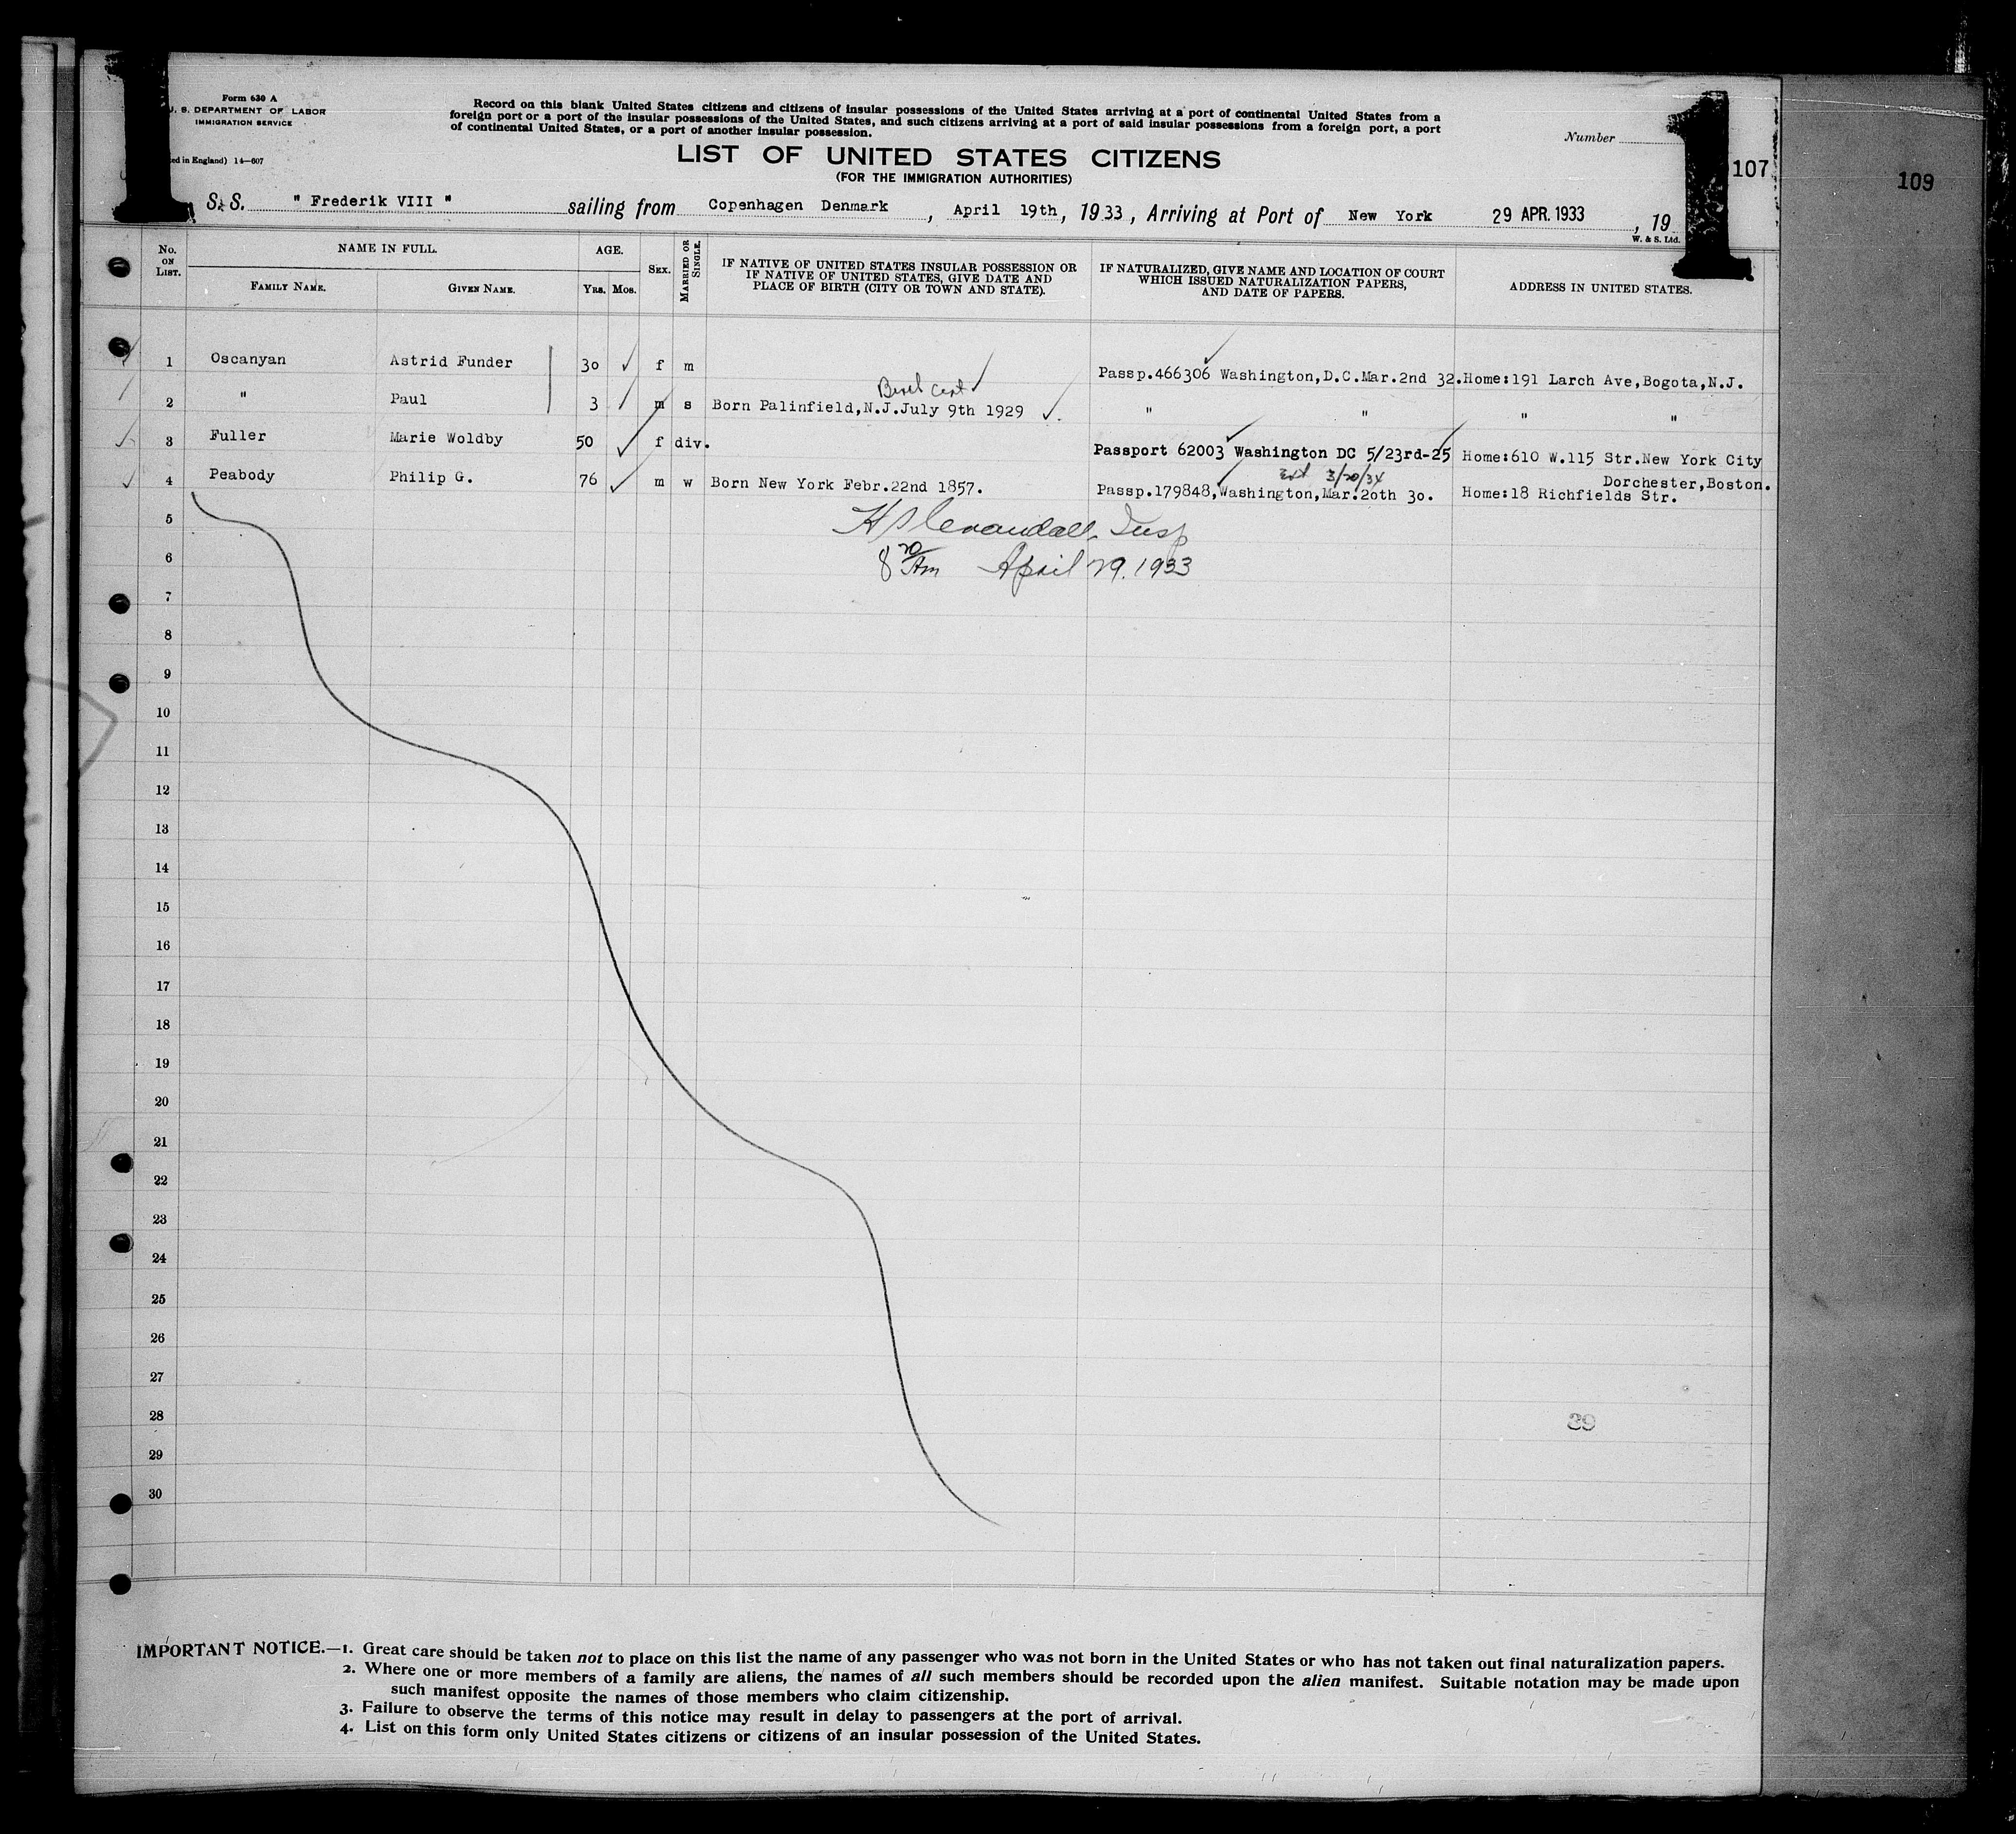 1 1
Form 630 A
U. S. DEPARTMENT OF LABOR
IMMIGRATION SERVICE
ed in England) 14—607
Record on this blank United States citizens and citizens of insular possessions of the United States arriving at a port of continental United States from a
foreign port or a port of the insular possessions of the United States, and such citizens arriving at a port of said insular possessions from a foreign port, a port
of continental United States, or a port of another insular possession.
Number
LIST OF UNITED STATES CITIZENS
(FOR THE IMMIGRATION AUTHORITIES)
107
109
S.S. " Frederik VIII " sailing from Copenhagen Denmark, April 19th, 1933, Arriving at Port of New York 29 APR. 1933, 19
W. & S. Ltd.
No. ON LIST.
NAME IN FULL.
FAMILY NAME. GIVEN NAME.
AGE.
YRS. MOS.
SEX.
MARRIED OR SINGLE.
IF NATIVE OF UNITED STATES INSULAR POSSESSION OR
IF NATIVE OF UNITED STATES, GIVE DATE AND
PLACE OF BIRTH (CITY OR TOWN AND STATE).
IF NATURALIZED, GIVE NAME AND LOCATION OF COURT
WHICH ISSUED NATURALIZATION PAPERS,
AND DATE OF PAPERS.
ADDRESS IN UNITED STATES.
1 Oscanyan Astrid Funder 30 f m Passp.466306 Washington,D.C.Mar.2nd 32. Home:191 Larch Ave,Bogota,N.J.
Birth Cert
2 " Paul 3 m s Born Palinfield,N.J.July 9th 1929 " " " "
3 Fuller Marie Woldby 50 f div. Passport 62003 Washington DC 5/23rd-25 Home:610 W.115 Str.New York City
Ext 3/20/34 Dorchester,Boston.
4 Peabody Philip G. 76 m w Born New York Febr.22nd 1857. Passp.179848,Washington,Mar.20th 30. Home:18 Richfields Str.
5 Crandall Insp
6 8 Am April 29. 1933
7
8
9
10
11
12
13
14
15
16
17
18
19
20
21
22
23
24
25
26
27
28 39
29
30
IMPORTANT NOTICE.—1. Great care should be taken not to place on this list the name of any passenger who was not born in the United States or who has not taken out final naturalization papers.
2. Where one or more members of a family are aliens, the names of all such members should be recorded upon the alien manifest. Suitable notation may be made upon
such manifest opposite the names of those members who claim citizenship.
3. Failure to observe the terms of this notice may result in delay to passengers at the port of arrival.
4. List on this form only United States citizens or citizens of an insular possession of the United States.